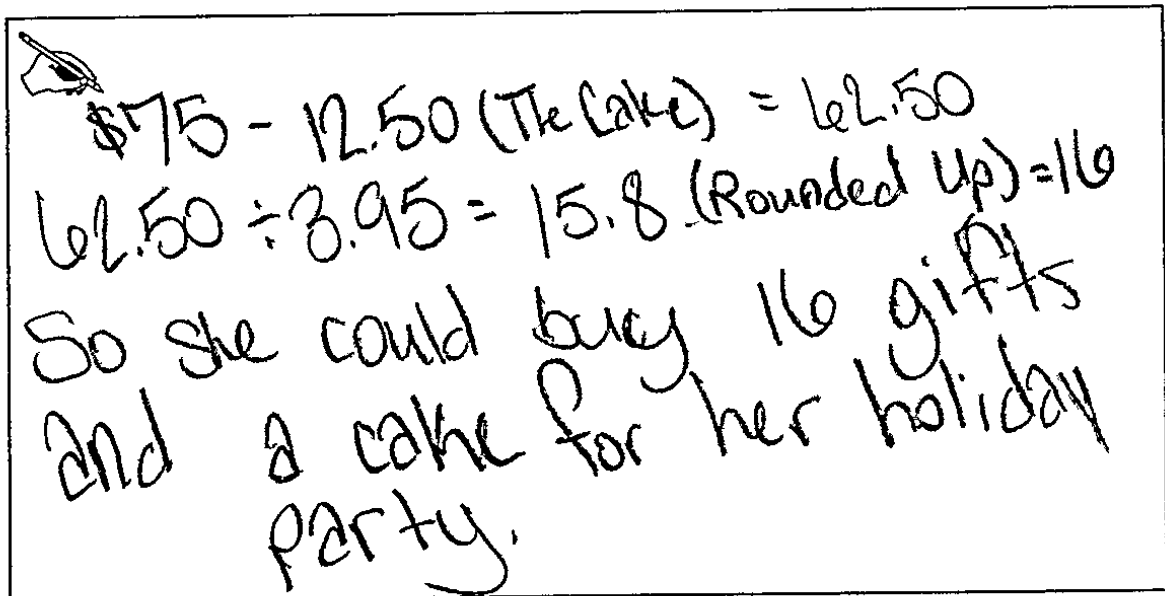 $75 - 12.50 (The Cake) = 62.50
62.50 ÷ 3.95 = 15.8 (Rounded Up) = 16
So she could buy 16 gifts
and a cake for her holiday
party.